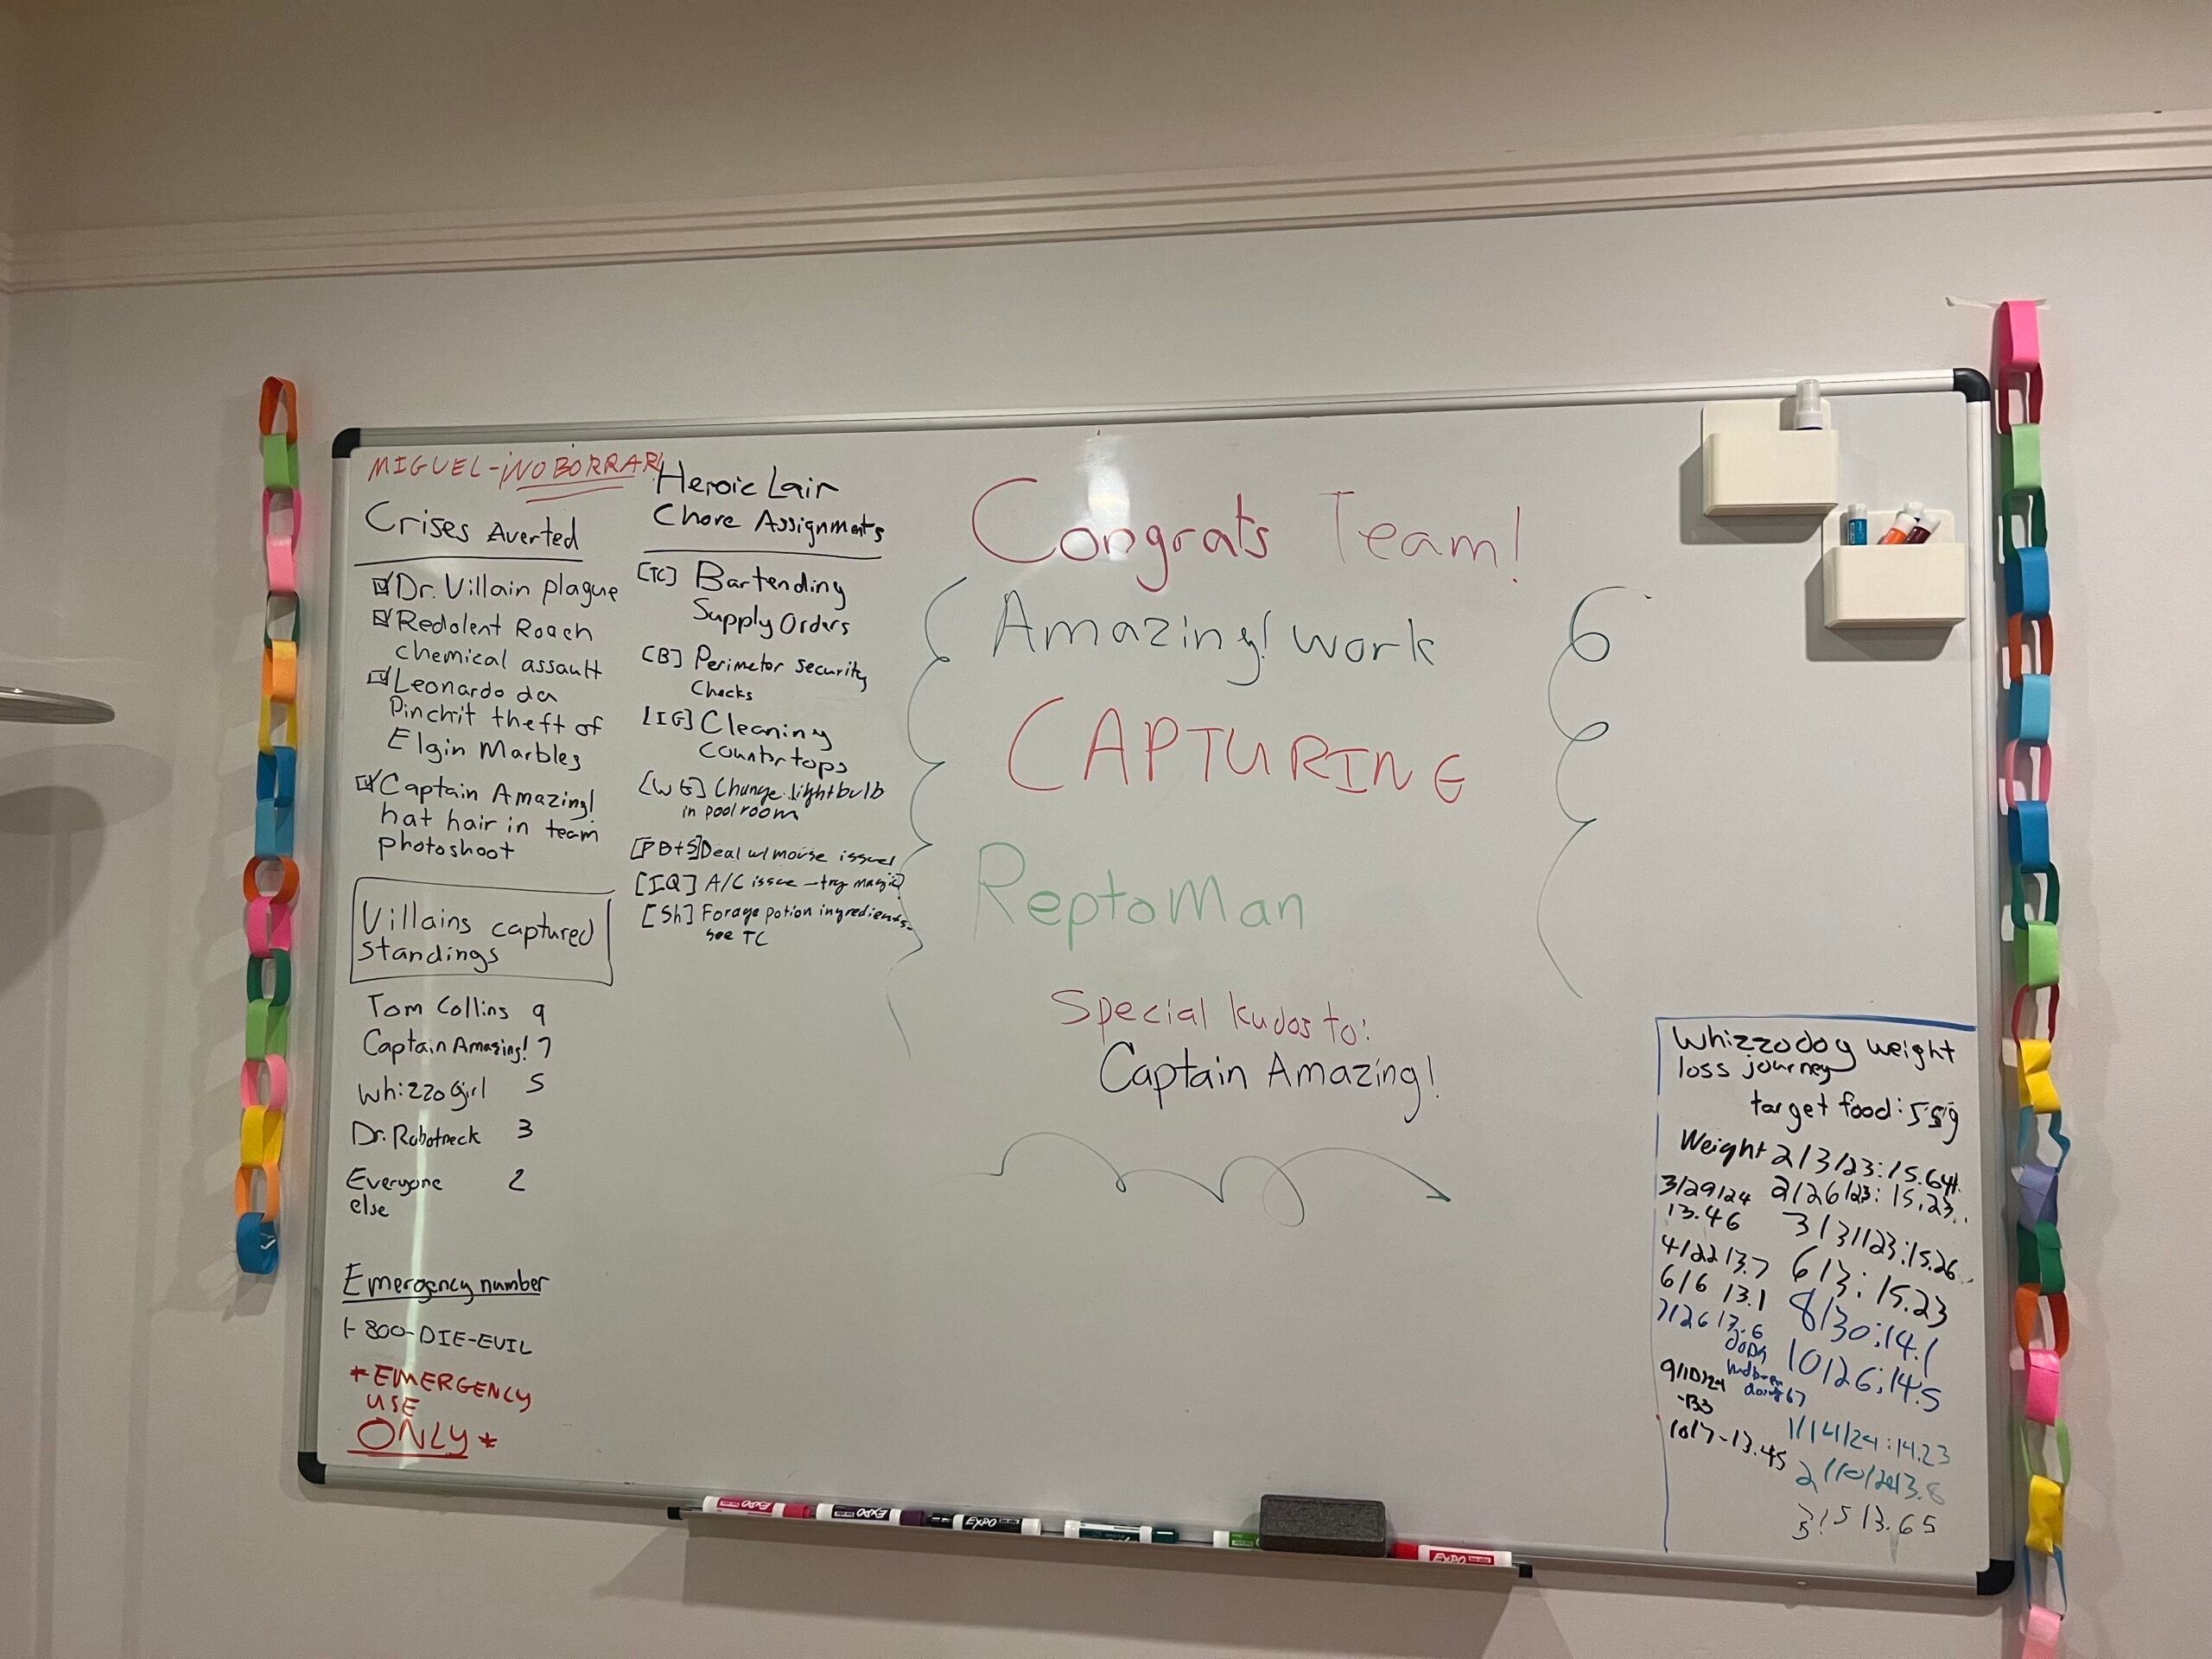 MIGUEL-¡NO BORRAR!
Crises Averted
Dr. Villain plague
Redolent Roach
chemical assault
Leonardo da
Pinchit theft of
Elgin Marbles
Captain Amazing!
hat hair in team
photoshoot
Villains captured
standings
Tom Collins 9
Captain Amazing! 7
Whizzo Girl 5
Dr. Robotneck 3
Everyone 2
else
Emergency number
1-800-DIE-EVIL
*EMERGENCY
USE
ONLY*
Heroic Lair
Chore Assignments
[TC] Bartending
Supply Orders
[B] Perimeter security
Checks
[IG] Cleaning
countertops
[WG] Change lightbulb
in pool room
[PB+S] Deal w/ mouse issue
[IQ] A/C issue - try magic?
[Sh] Forage potion ingredients
see TC
Congrats Team!
Amazing! work
CAPTURING
ReptoMan
Special kudos to:
Captain Amazing!
Whizzodog weight
loss journey
target food: 55g
Weight 2/3/23: 15.64
2/26/23: 15.23
3/31/23: 15.26
6/3: 15.23
8/30: 14.1
10/26: 14.5
1/14/24: 14.23
2/10/24 13.8
13.65
3/29/24
13.46
4/22 13.7
6/6 13.1
7/26 13.6
9/10/24
10/7 - 13.45
EXPO
EXPO
EXPO
EXPO